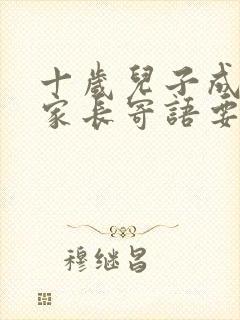 十歲兒子成
家長寄語要
穆继昌